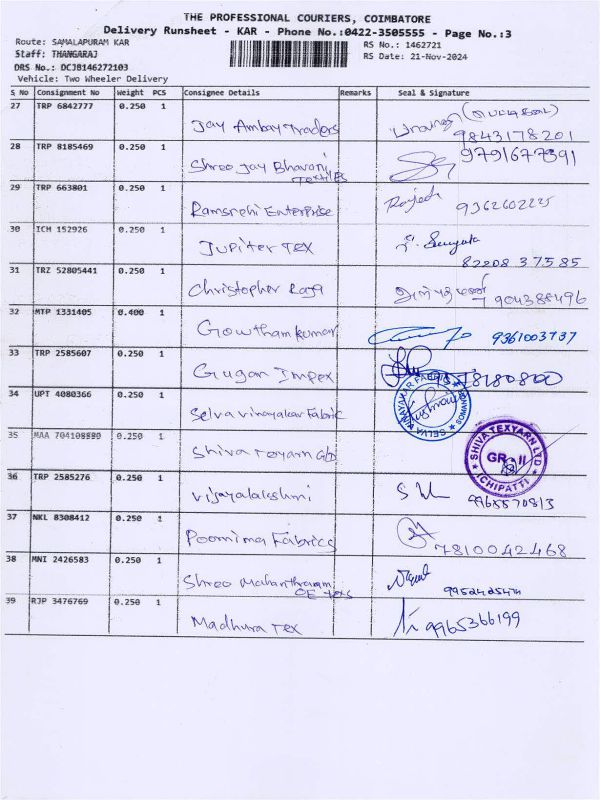 THE PROFESSIONAL COURIERS, COIMBATORE
Delivery Runsheet - KAR - Phone No.:0422-3505555 - Page No.:3
Route: SAMALAPURAM KAR
RS No.: 1462721
Staff: THANGARAJ
RS Date: 21-Nov-2024
DRS No.: DCJB146272103
Vehicle: Two Wheeler Delivery
S No Consignment No Weight PCS Consignee Details Remarks Seal & Signature
27 TRP 6842777 0.250 1 Jay Ambay Traders 9843178201
28 TRP 8185469 0.250 1 Shree Jay Bhavani Textiles 9791677391
29 TRP 663801 0.250 1 Ramsnehi Enterprise 9362602225
30 ICH 152926 0.250 1 Jupiter Tex 82208 37585
31 TRZ 52805441 0.250 1 Christopher Raja
32 MTP 1331405 0.400 1 Gowtham Kumar 9361003737
33 TRP 2585607 0.250 1 Gugan Impex
34 UPT 4080366 0.250 1 Selva Vinayakar Fabric
35 0.250 1 Shiva Texyarn Ltd SHIVA TEXYARN LTD GR-II ICHIPATTI
36 TRP 2585276 0.250 1 Vijayalakshmi 9965570813
37 NKL 8308412 0.250 1 Poornima Fabrics 7810042468
38 MNI 2426583 0.250 1 Shree
39 RJP 3476769 0.250 1 Madhura Tex 9965366199